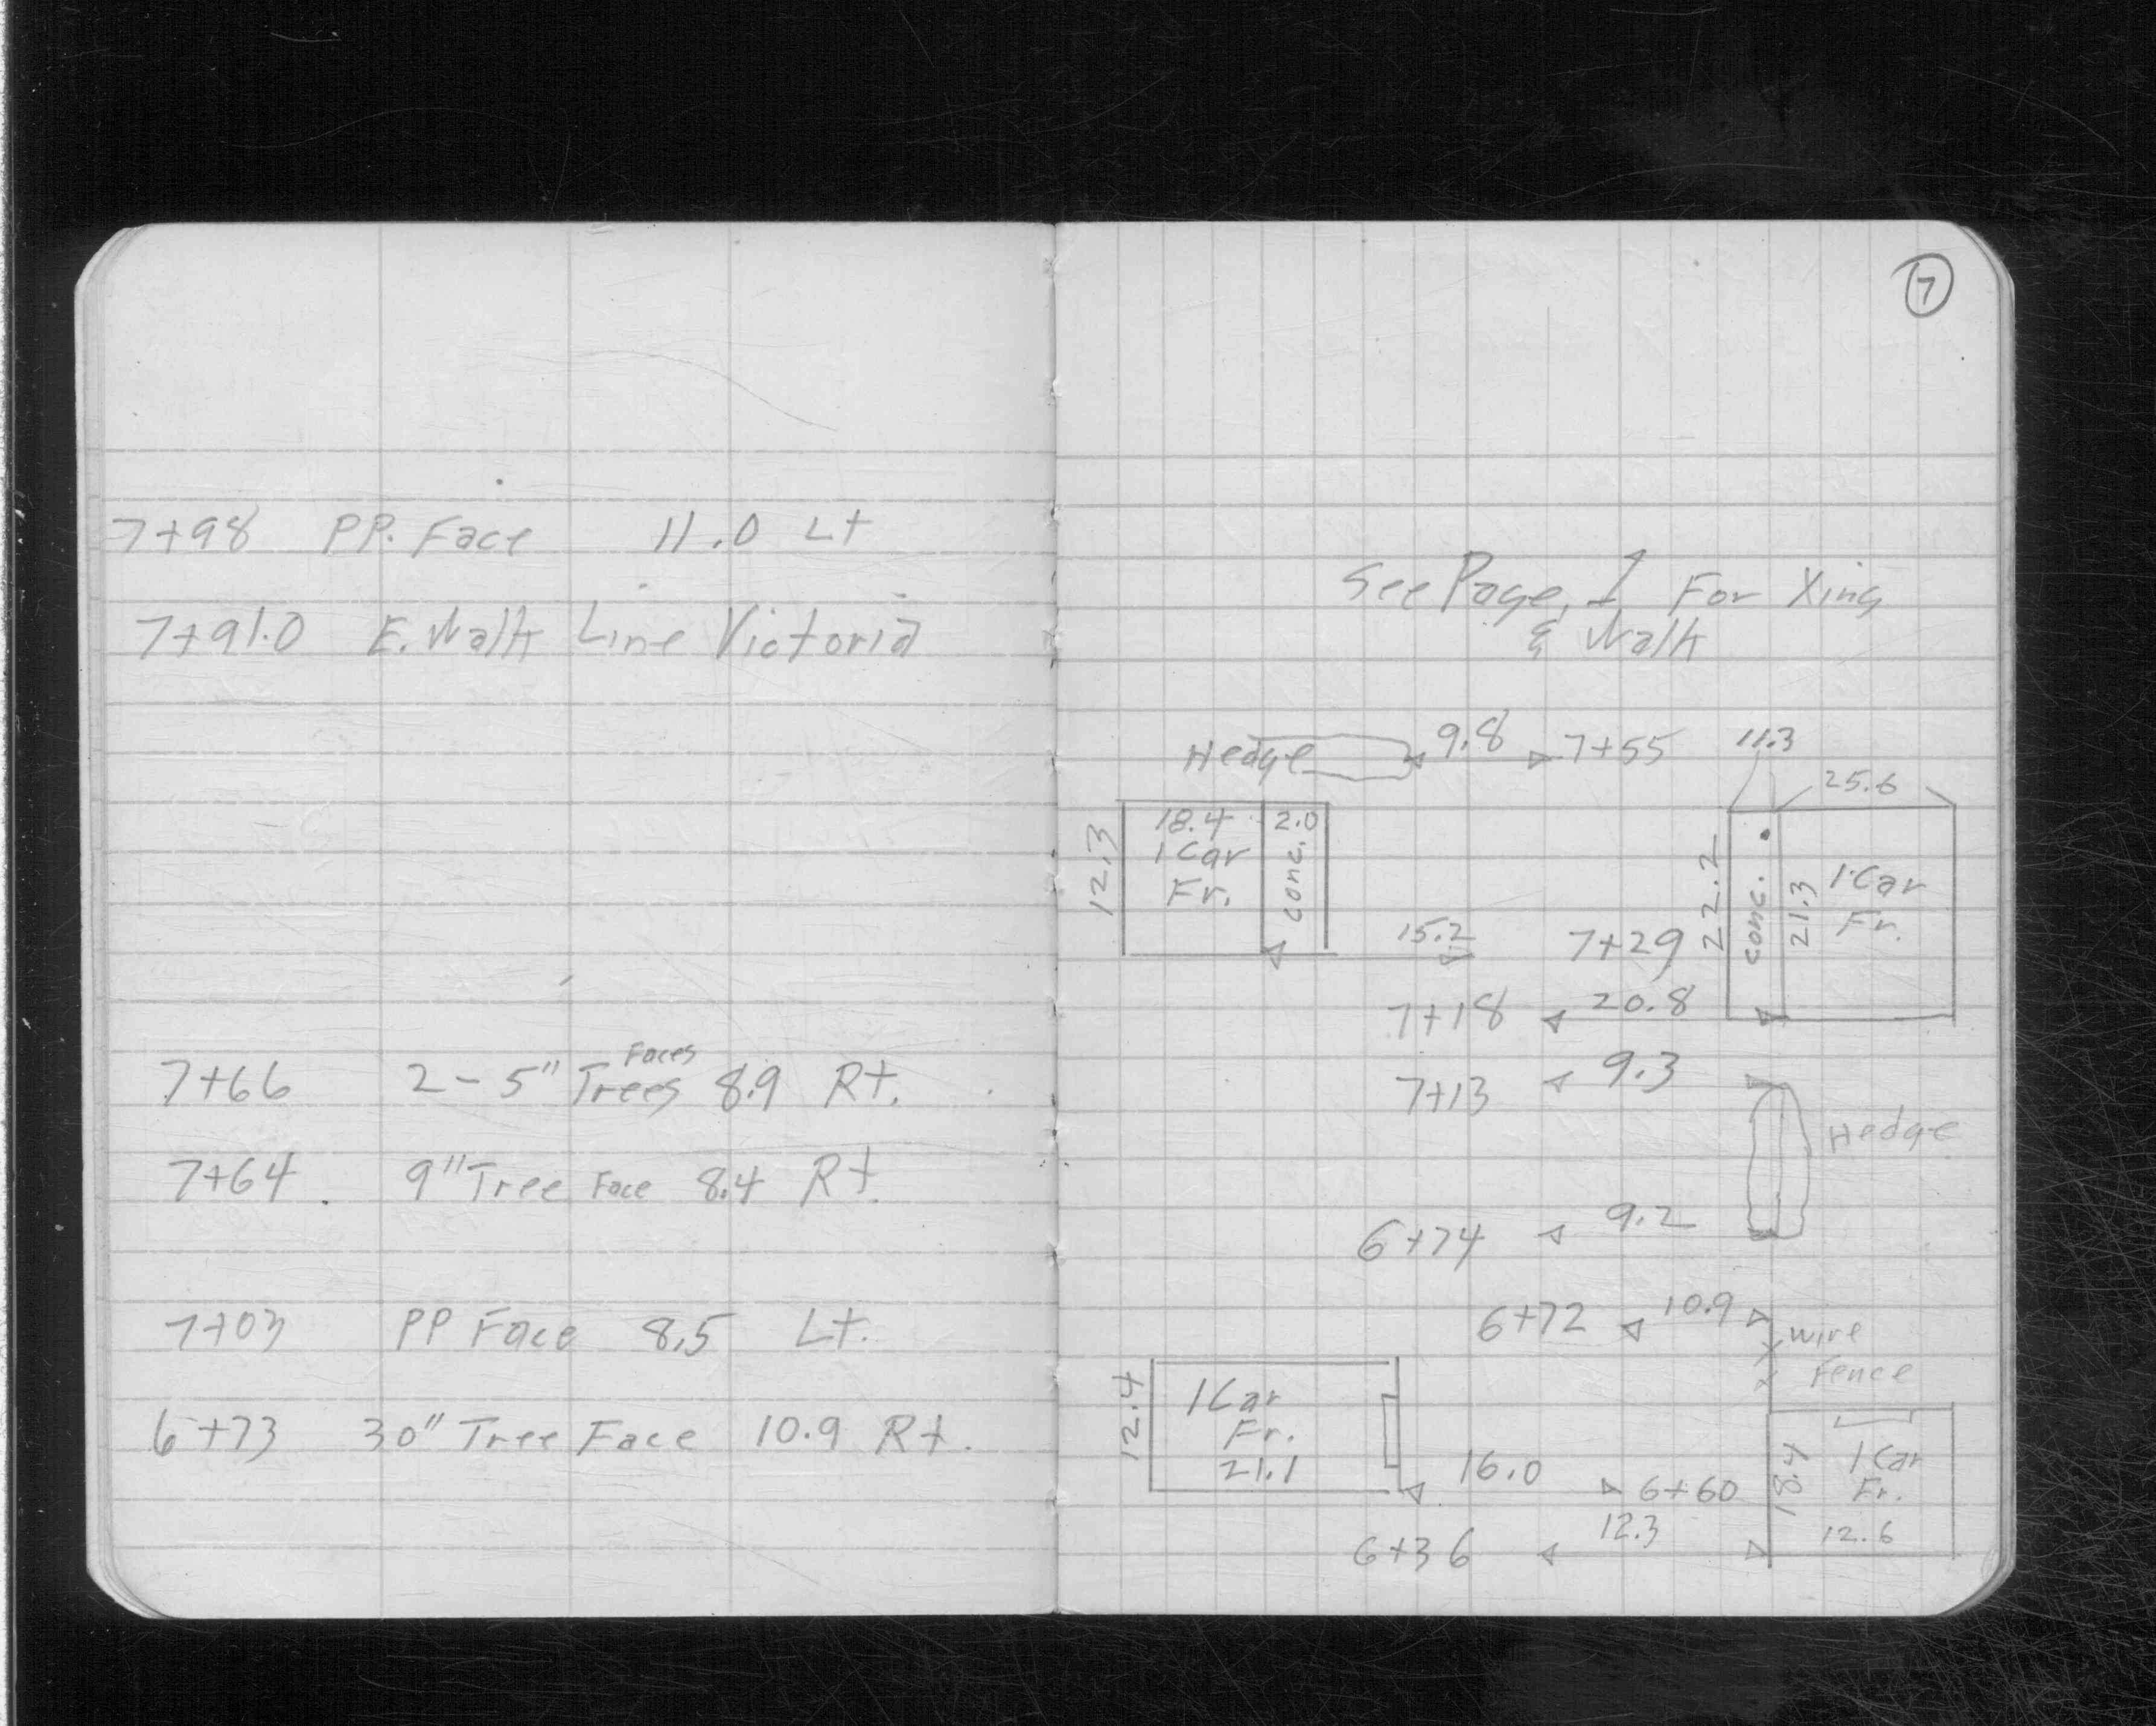 7+98 PP. Face 11.0 Lt
7+91.0 E. Walk Line Victoria
7+66 2-5" Trees Faces 8.9 Rt.
7+64 9" Tree Face 8.4 Rt.
7+03 PP Face 8.5 Lt.
6+73 30" Tree Face 10.9 Rt.
7
See Page 1 For Xing
& Walk
Hedge 9.8 7+55 11.3
25.6
12.3 18.4 2.0
1 Car
Fr.
conc.
22.2 conc. 21.3 1 Car
Fr.
15.2 7+29
7+18 20.8
7+13 9.3
Hedge
6+74 9.2
6+72 10.9
wire
Fence
12.4 1 Car
Fr.
21.1
16.0 6+60
18.4 1 Car
Fr.
12.6
6+36 12.3